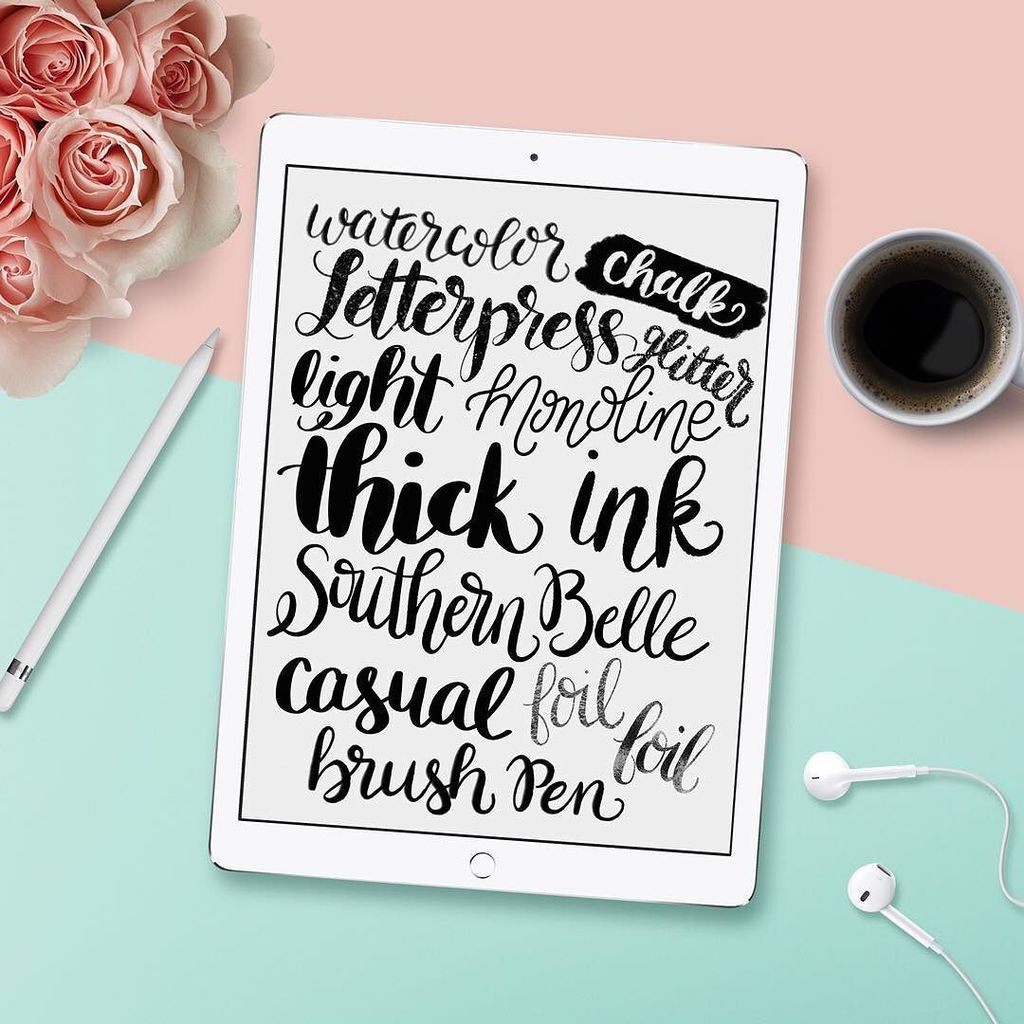 watercolor
chalk
Letterpress
glitter
light Monoline
thick ink
Southern Belle
casual foil
foil
brush Pen